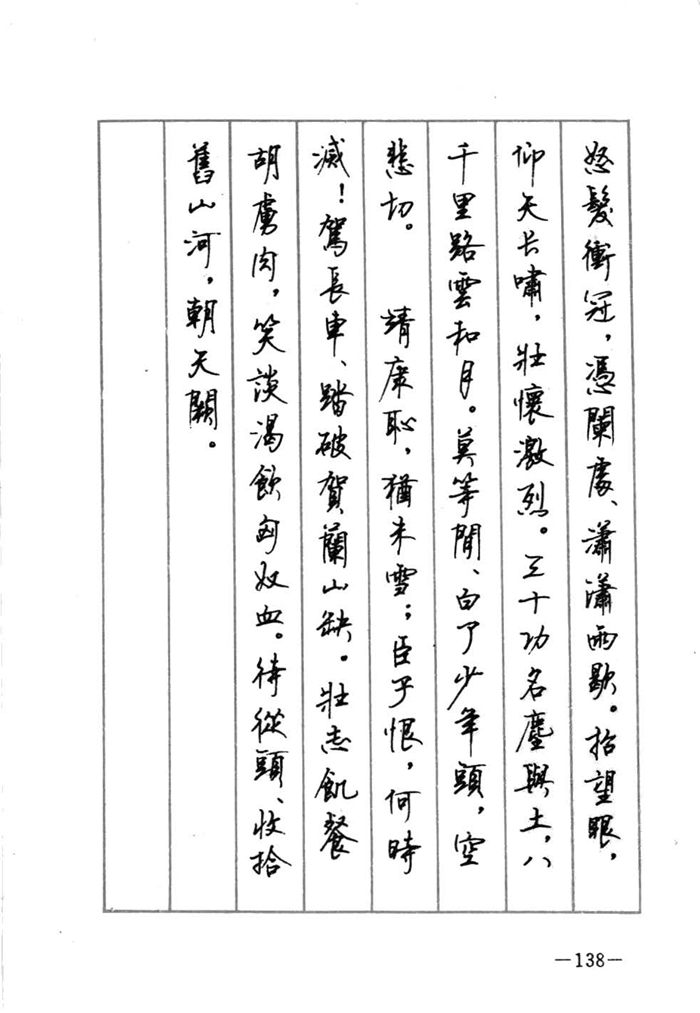 怒髮衝冠，憑闌處、瀟瀟雨歇。抬望眼，
仰天长嘯，壯懷激烈。三十功名塵與土，八
千里路雲和月。莫等閒、白了少年頭，空
悲切。　靖康恥，猶未雪；臣子恨，何時
滅！駕長車、踏破賀蘭山缺。壯志飢餐
胡虜肉，笑談渴飲匈奴血。待從頭、收拾
舊山河，朝天闕。
—138—